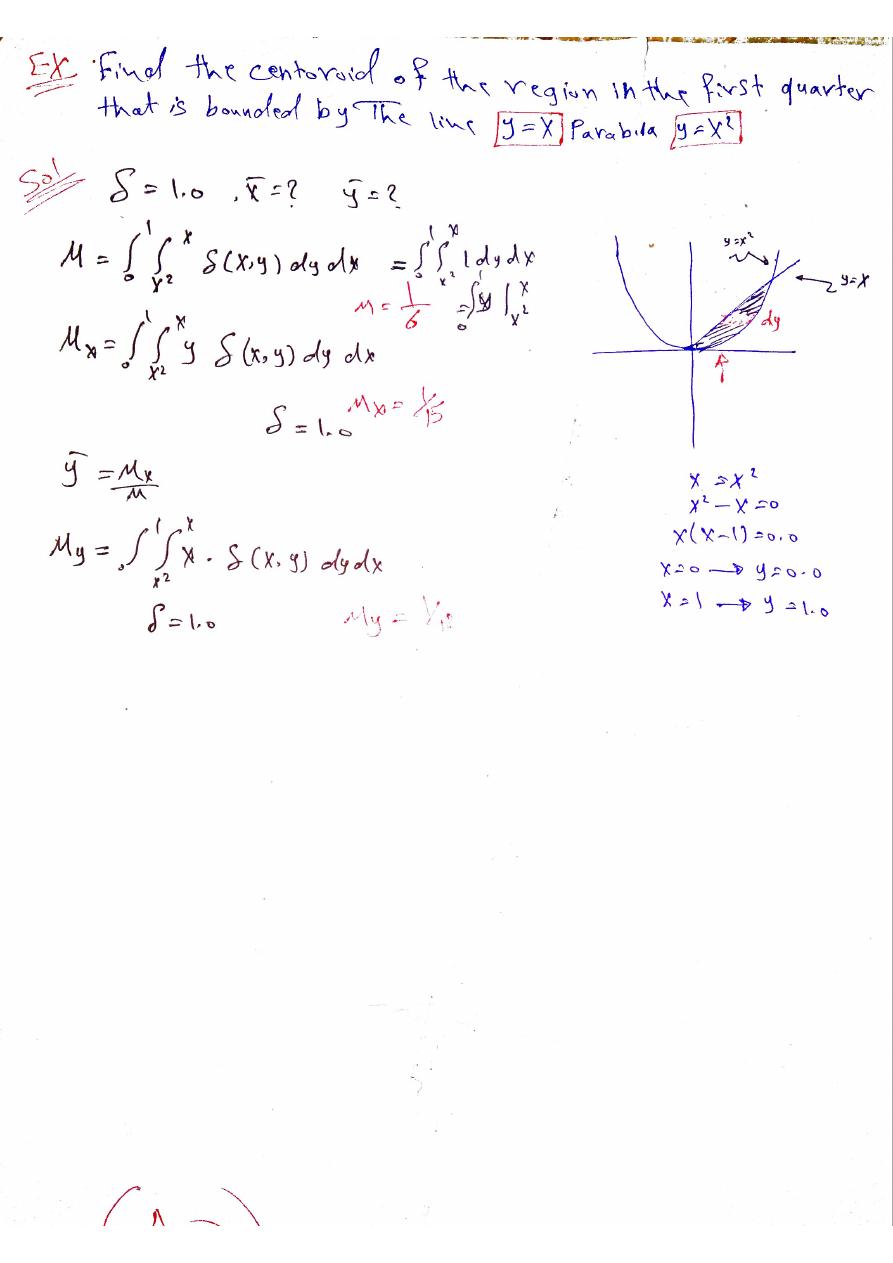 EX Find the centoroid of the region in the first quarter
that is bounded by The line y = x Parabola y = x²
Sol
δ = 1.0 , x̄ = ? ȳ = ?
M = ∫₀¹ ∫ₓ²ˣ δ(x,y) dy dx = ∫₀¹ ∫ₓ²ˣ 1 dy dx
M = 1/6 = ∫₀¹ y |ₓ²ˣ
Mx = ∫₀¹ ∫ₓ²ˣ y δ(x,y) dy dx
δ = 1.0 Mx = 1/15
ȳ = Mx/M
My = ∫₀¹ ∫ₓ²ˣ x · δ(x,y) dy dx
δ = 1.0 My =
y = x²
y = x
dy
x = x²
x² − x = 0
x(x−1) = 0.0
x = 0 → y = 0.0
x = 1 → y = 1.0